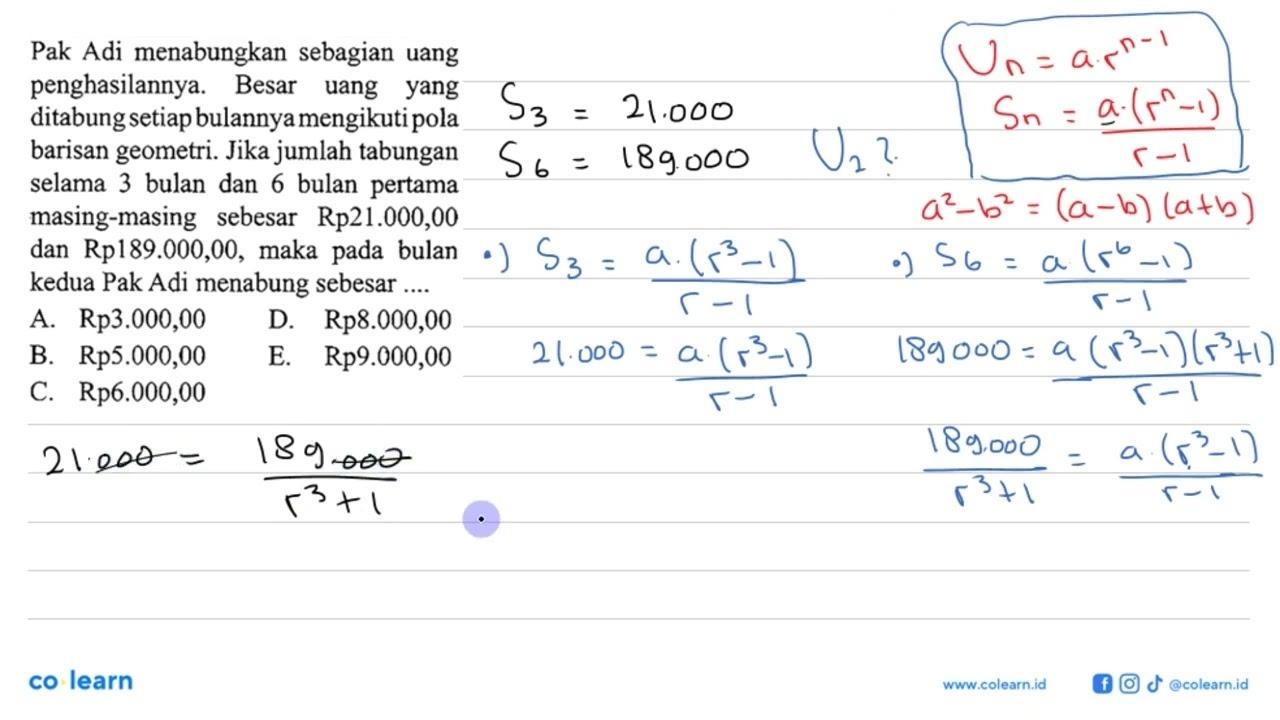 Pak Adi menabungkan sebagian uang
penghasilannya. Besar uang yang
ditabung setiap bulannya mengikuti pola
barisan geometri. Jika jumlah tabungan
selama 3 bulan dan 6 bulan pertama
masing-masing sebesar Rp21.000,00
dan Rp189.000,00, maka pada bulan
kedua Pak Adi menabung sebesar ....
A. Rp3.000,00 D. Rp8.000,00
B. Rp5.000,00 E. Rp9.000,00
C. Rp6.000,00
S₃ = 21.000
S₆ = 189.000
U₂?
Uₙ = a.rⁿ⁻¹
Sₙ = a.(rⁿ-1)/r-1
a²-b² = (a-b)(a+b)
•) S₃ = a.(r³-1)/r-1
21.000 = a.(r³-1)/r-1
•) S₆ = a.(r⁶-1)/r-1
189000 = a(r³-1)(r³+1)/r-1
189.000/r³+1 = a.(r³-1)/r-1
21.000 = 189.000/r³+1
co learn
www.colearn.id
@colearn.id